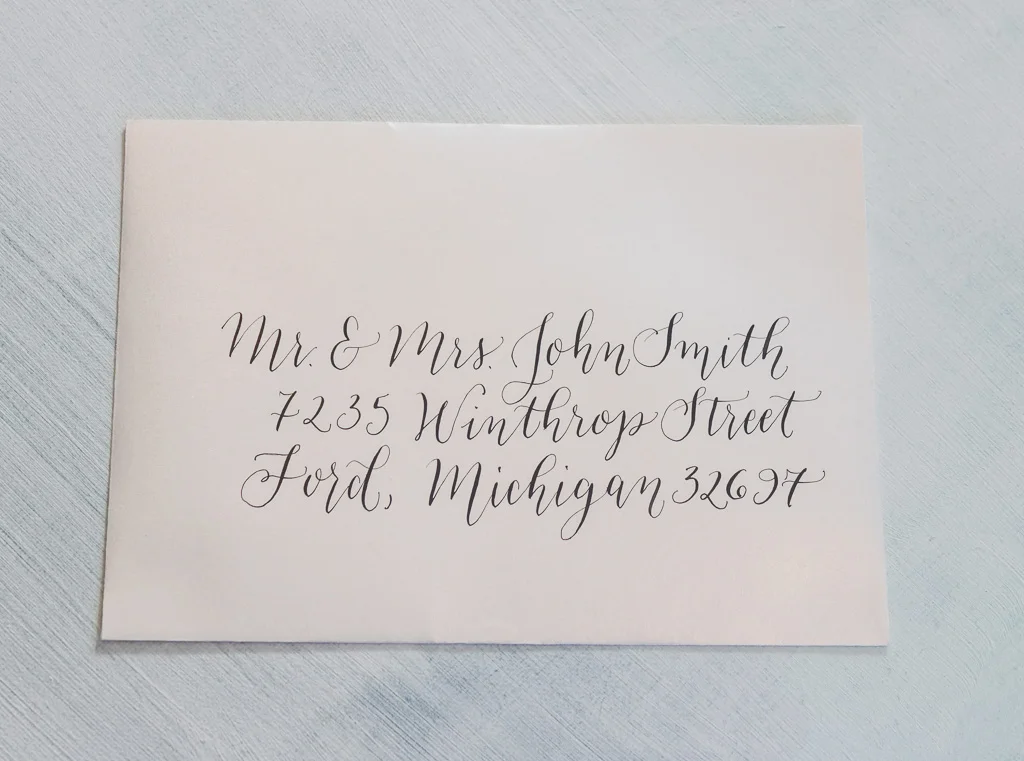 Mr. & Mrs. John Smith
7235 Winthrop Street
Ford, Michigan 32697